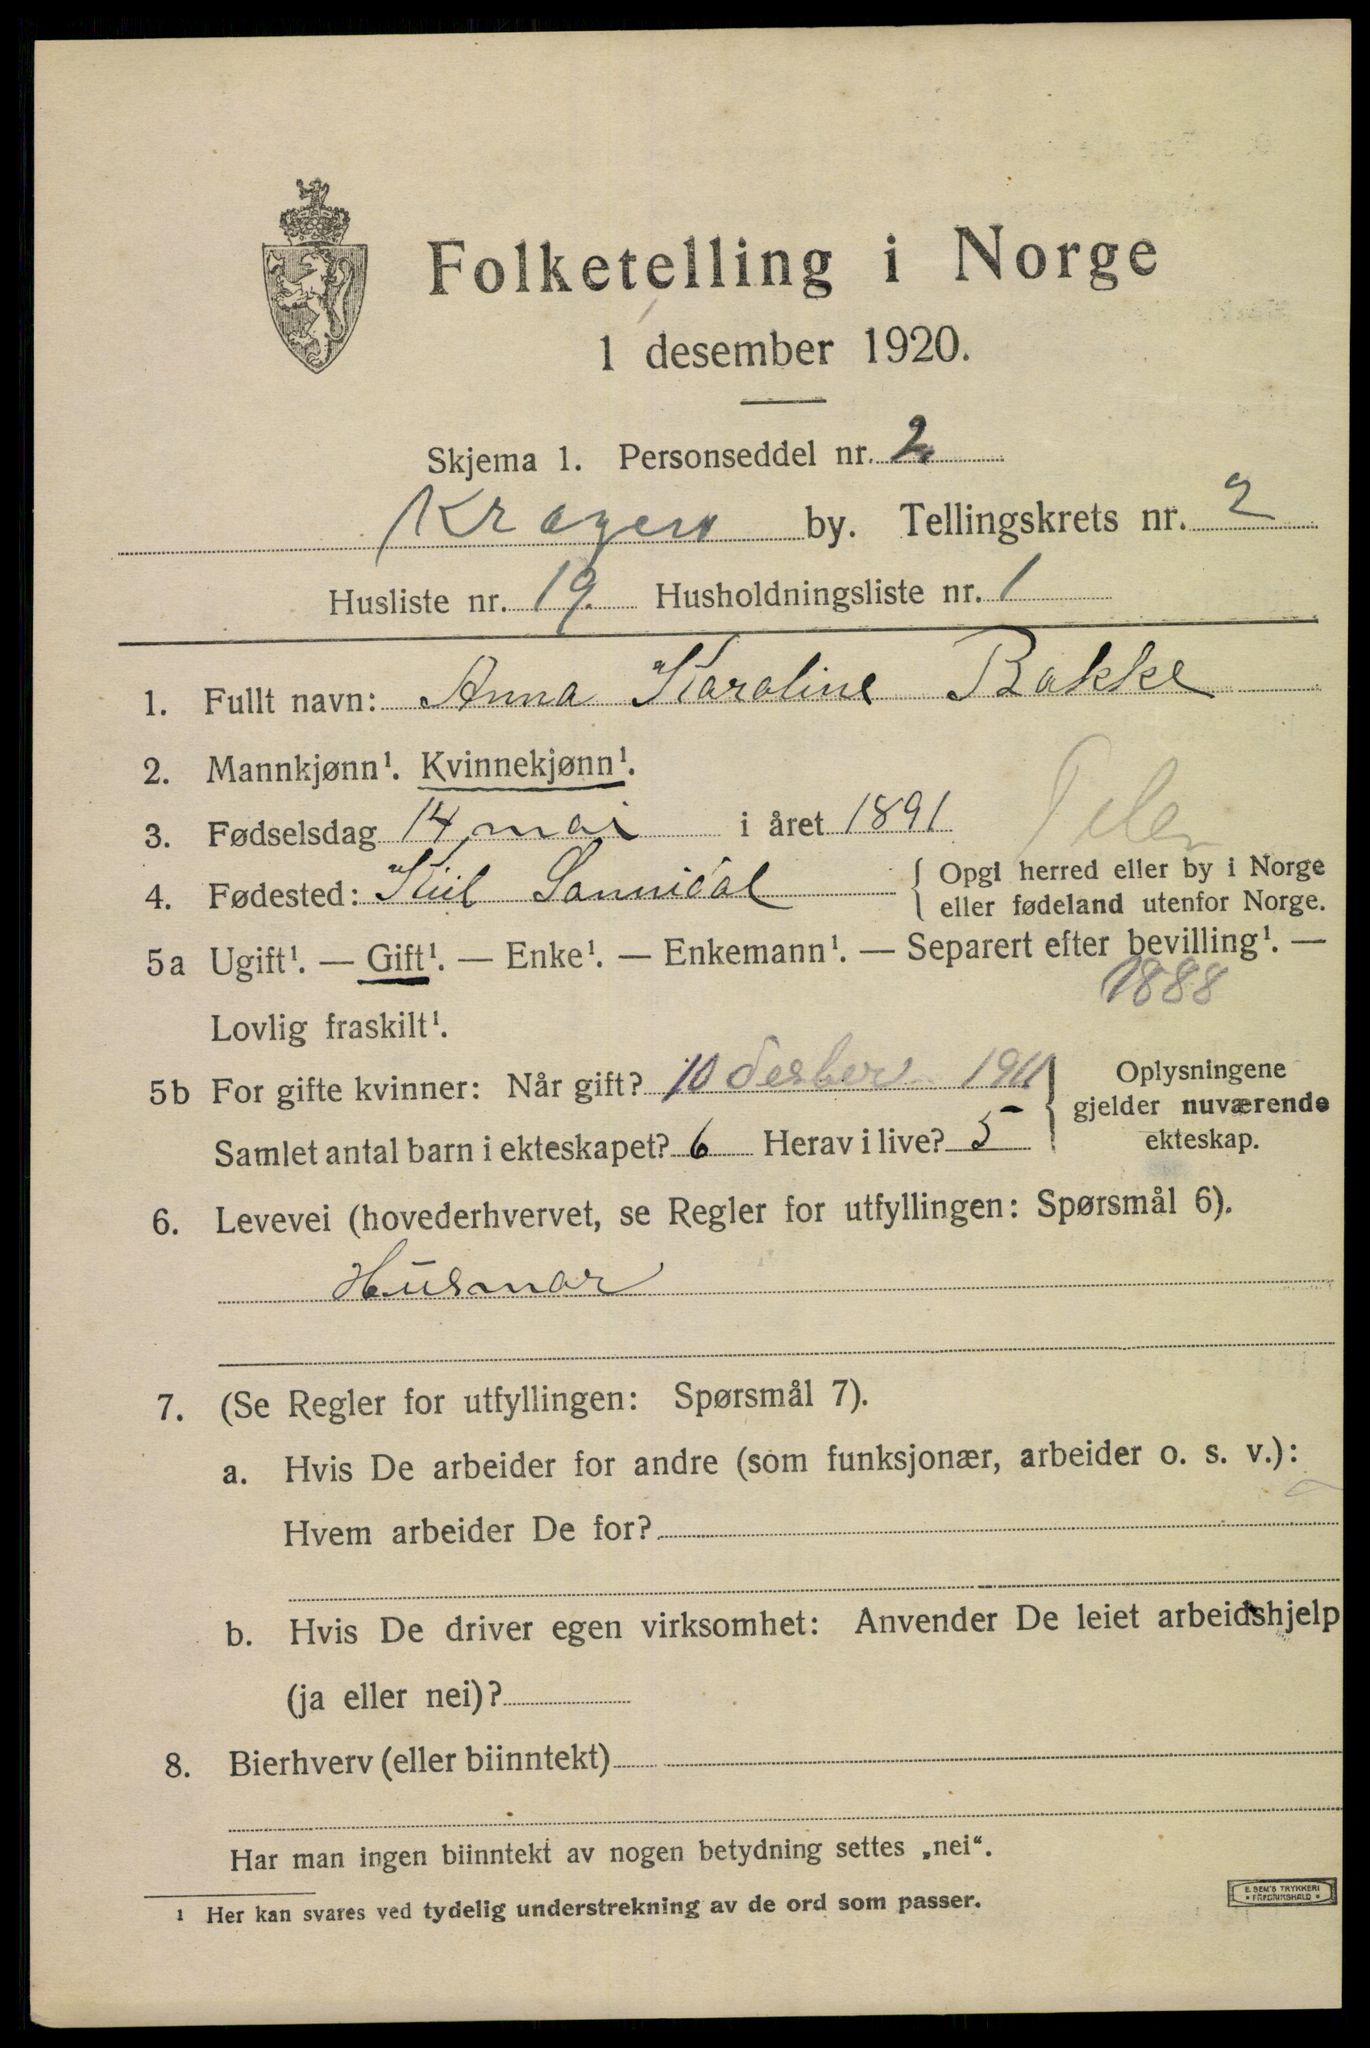 Folketelling i Norge
1 desember 1920.
Skjema 1. Personseddel nr. 2
Kragerø by. Tellingskrets nr. 2
Husliste nr. 19. Husholdningsliste nr. 1
1. Fullt navn: Anna Karoline Bakke
2. Mannkjønn¹. Kvinnekjønn¹.
3. Fødselsdag 14 mai i året 1891
4. Fødested: Kiil Sannidal { Opgi herred eller by i Norge
eller fødeland utenfor Norge.
5a Ugift¹. — Gift¹. — Enke¹. — Enkemann¹. — Separert efter bevilling¹. —
1888
Lovlig fraskilt¹.
5b For gifte kvinner: Når gift? 10 desber 1911 } Oplysningene
gjelder nuværende
ekteskap.
Samlet antal barn i ekteskapet? 6 Herav i live? 5
6. Levevei (hovederhvervet, se Regler for utfyllingen: Spørsmål 6).
Husmor
7. (Se Regler for utfyllingen: Spørsmål 7).
a. Hvis De arbeider for andre (som funksjonær, arbeider o. s. v.):
Hvem arbeider De for?
b. Hvis De driver egen virksomhet: Anvender De leiet arbeidshjelp
(ja eller nei)?
8. Bierhverv (eller biinntekt)
Har man ingen biinntekt av nogen betydning settes „nei“.
¹ Her kan svares ved tydelig understrekning av de ord som passer.
E. SEM'S TRYKKERI
FREDRIKSHALD